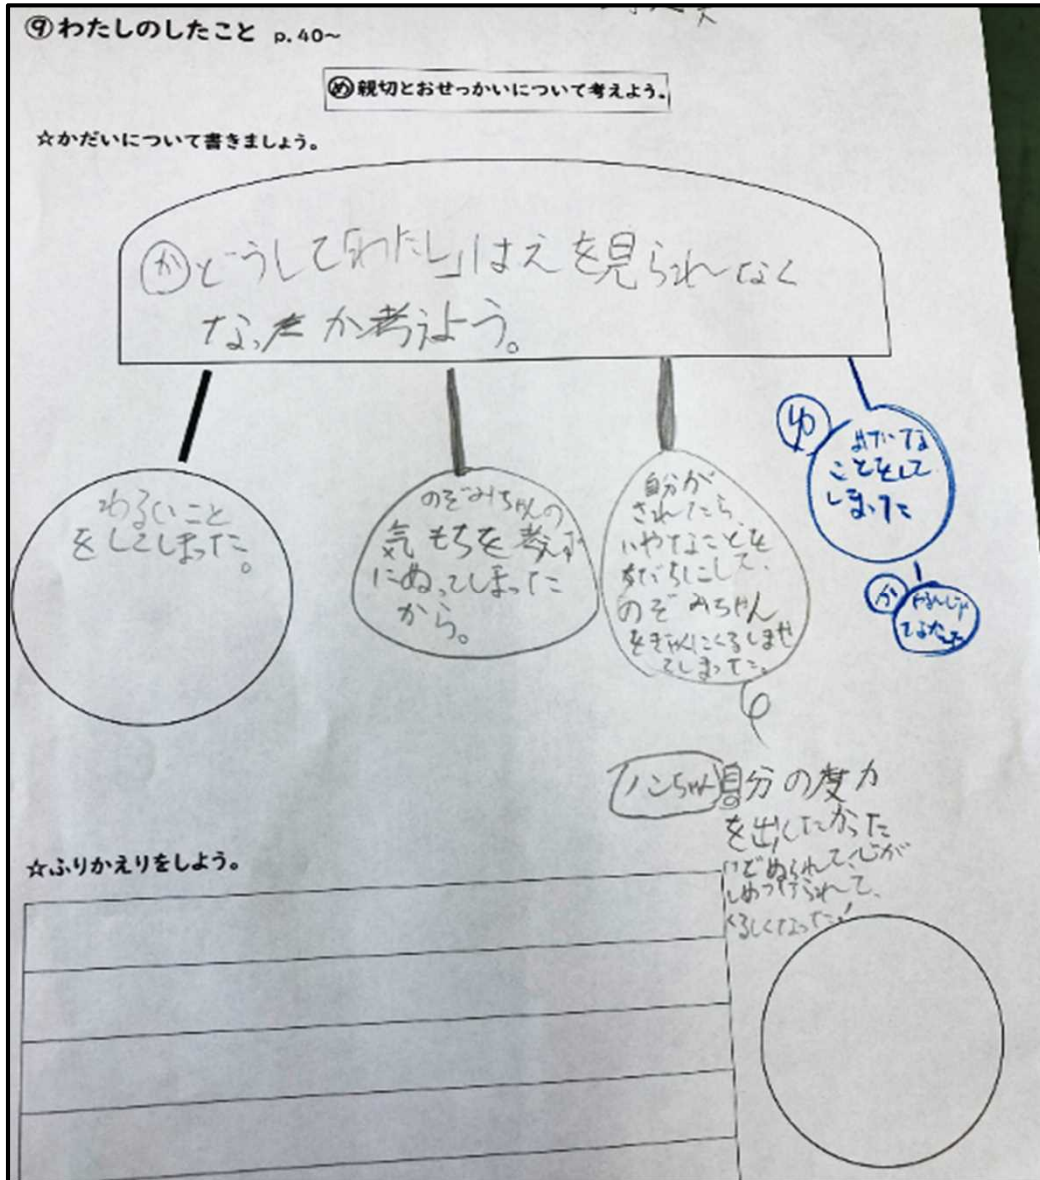 ⑨わたしのしたこと p.40~
め 親切とおせっかいについて考えよう。
☆かだいについて書きましょう。
か どうして「わたし」はえを見られなく
なったか考えよう。
わるいこと
をしてしまった。
のぞみちゃんの
気もちを考えず
にぬってしまった
から。
自分が
されたら、
いやなことを
友だちにして、
のぞみちゃん
をぎゃくにくるしませ
てしまった。
ゆ
ことをして
しまった
か
ノンちゃん
自分の度力
を出したかった
けどぬられて、心が
しめつけられて、
くるしくなった!
☆ふりかえりをしよう。